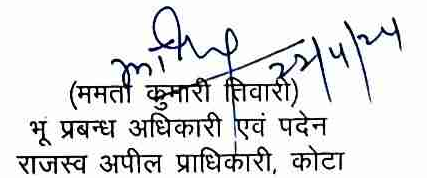 22/4/24
(ममता कुमारी तिवारी)
भू प्रबन्ध अधिकारी एवं पदेन
राजस्व अपील प्राधिकारी, कोटा